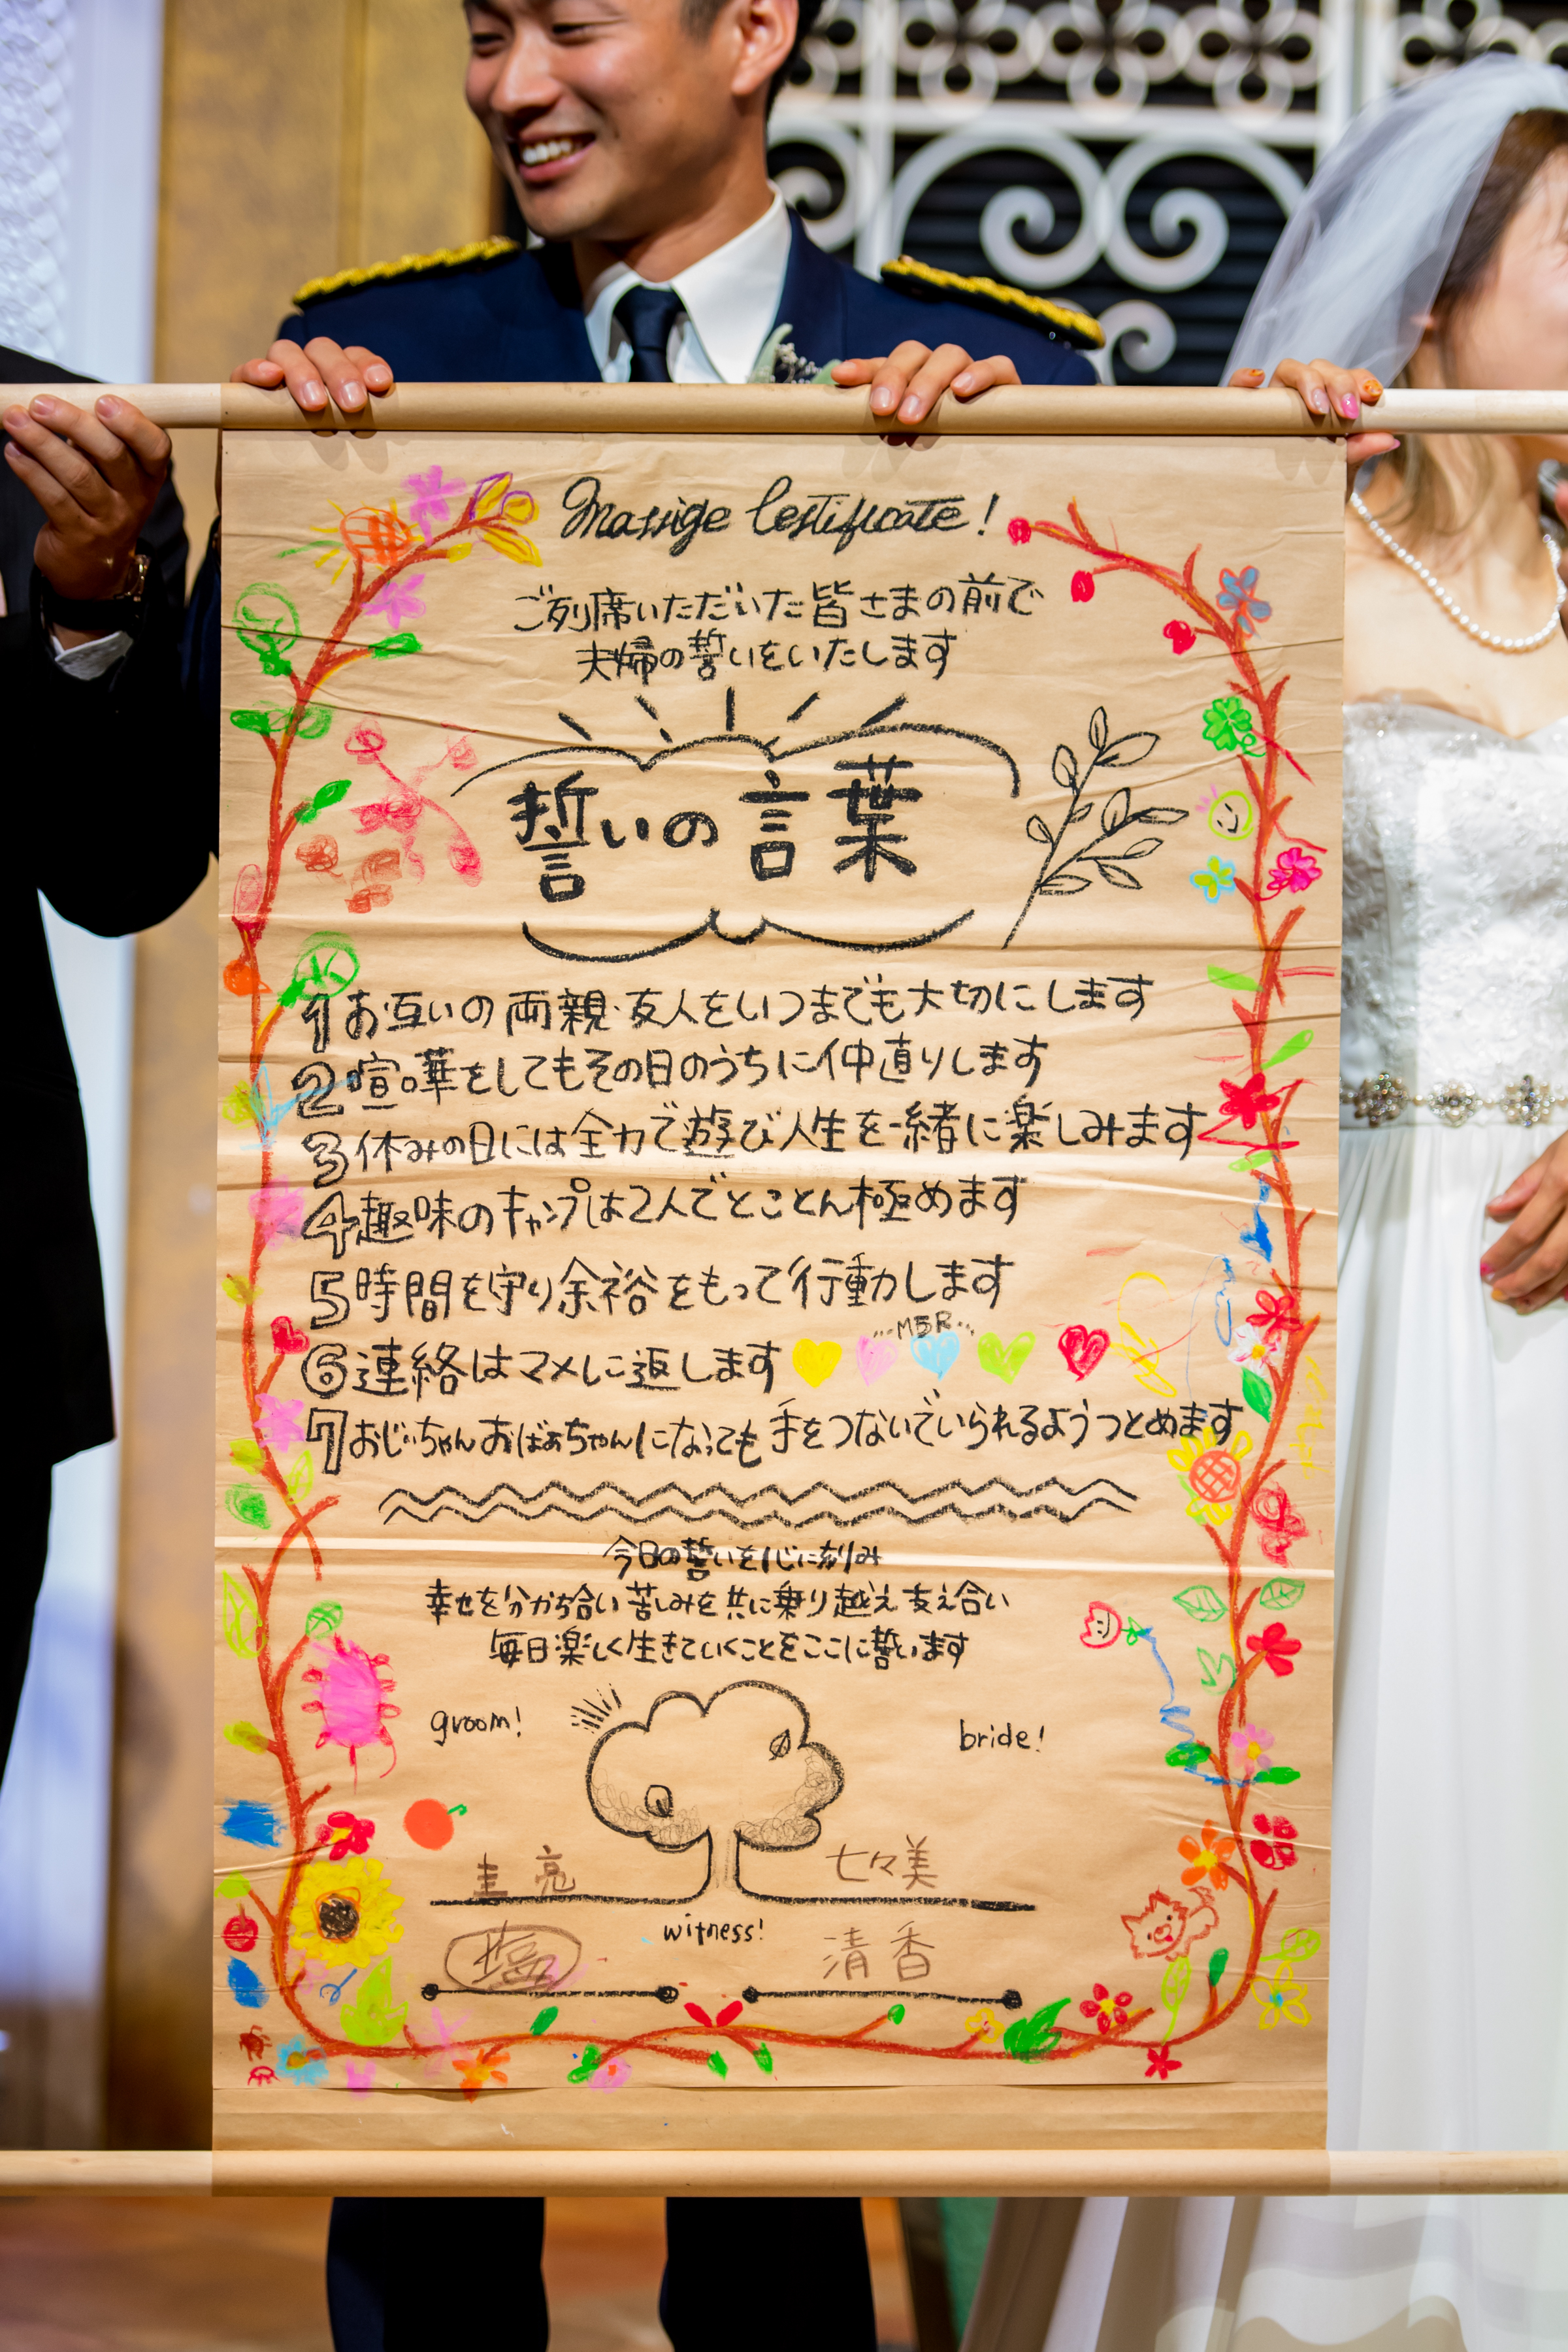 Marrige Certificate!
ご列席いただいた皆さまの前で
夫婦の誓いをいたします
誓いの言葉
1 お互いの両親・友人をいつまでも大切にします
2 喧嘩をしてもその日のうちに仲直りします
3 休みの日には全力で遊び人生を一緒に楽しみます
4 趣味のキャンプは2人でとことん極めます
5 時間を守り余裕をもって行動します
6 連絡はマメに返します
7 おじいちゃんおばあちゃんになっても手をつないでいられるようつとめます
今日の誓いを心に刻み
幸せを分かち合い苦しみを共に乗り越え支え合い
毎日楽しく生きていくことをここに誓います
groom! bride!
圭亮 七々美
witness!
清香